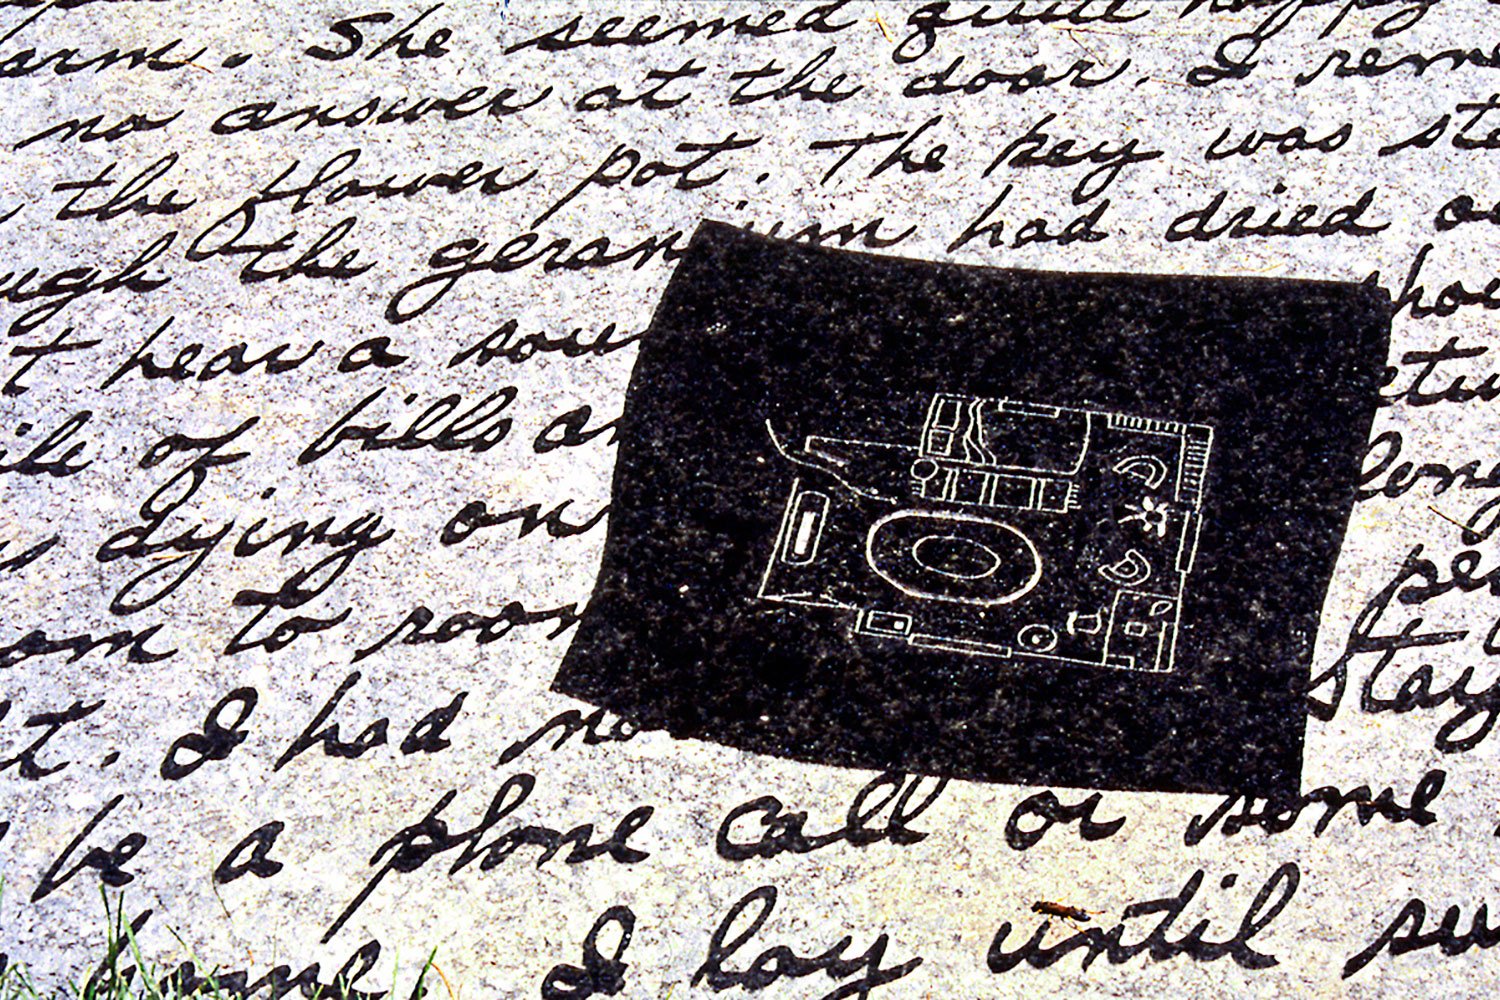 arm. She seemed quite happy
no answer at the door. I reme
the flower pot. The key was ste
ugh the geranium had dried o
t hear a sou pho
ile of bills an etu
s dying on long
om to room pe
t. I had no stay
be a phone call or some
home. I lay until su